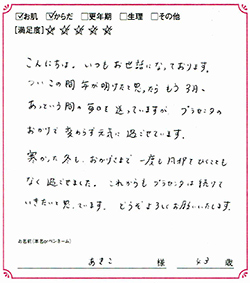 ☑お肌 ☑からだ □更年期 □生理 □その他
[満足度] ☆ ☆ ☆ ☆ ☆
こんにちは。いつもお世話になっております。
ついこの間 年が明けたと思ったら もう 3月。
あっという間の毎日を送っていますが、プラセンタの
おかげで 変わらず元気に 過ごせています。
寒かった冬も、おかげさまで 一度も風邪ひくことも
なく 過ごせました。これからもプラセンタは続けて
いきたいと思っています。どうぞよろしくお願いいたします。
お名前(本名orペンネーム)
あきこ 様 43 歳